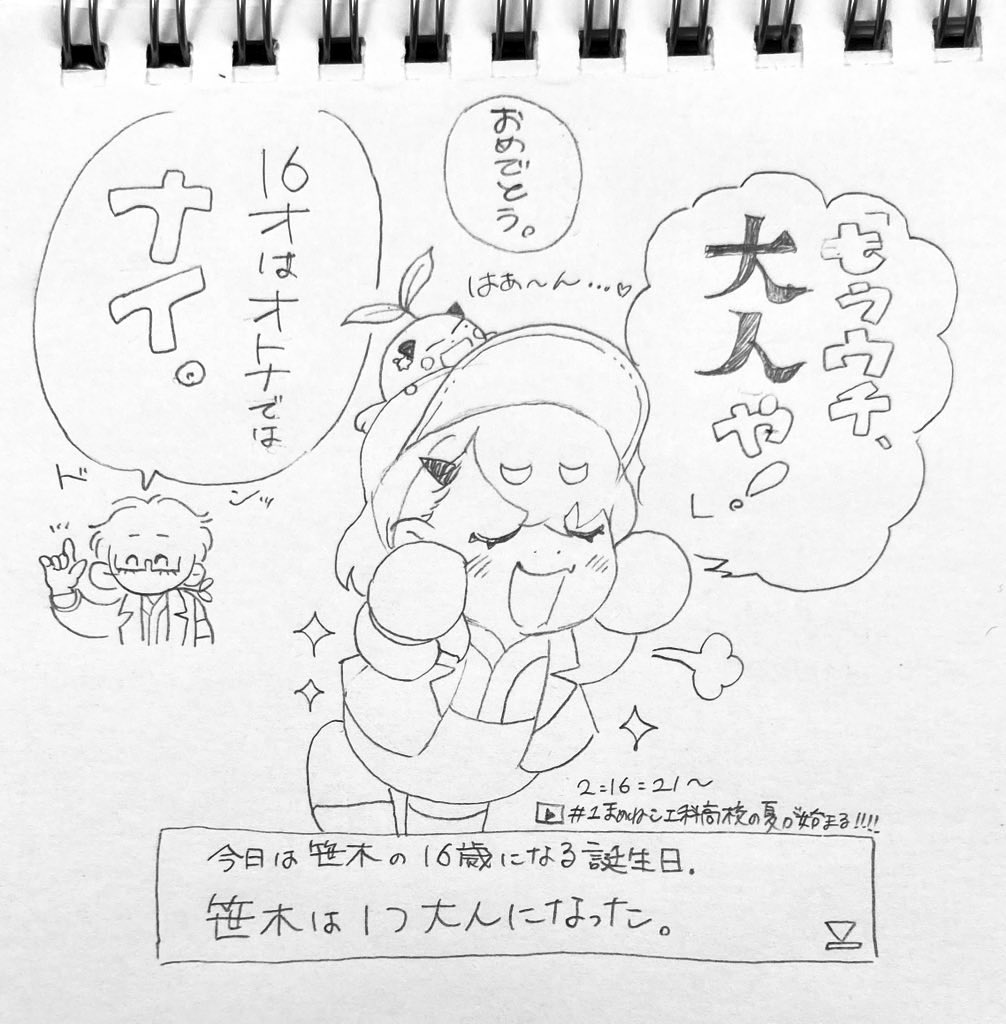 「もうウチ、
大人や!」
おめでとう。
はあ〜ん…♡
16才はオトナでは
ナイ。
ド
ンッ
2:16:21〜
#1まめねこ工科高校の夏が始まる!!!!
今日は笹木の16歳になる誕生日.
笹木は1つ大人になった。